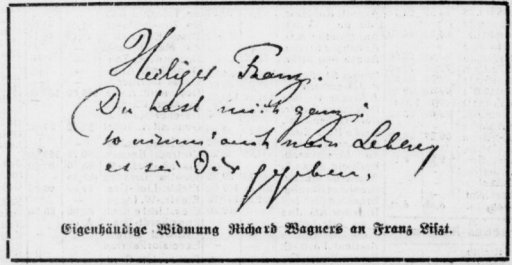 Heiliger Franz.
Du hast mich ganz;
so nimm' auch mein Leben,
es sei Dir gegeben.
Eigenhändige Widmung Richard Wagners an Franz Liszt.